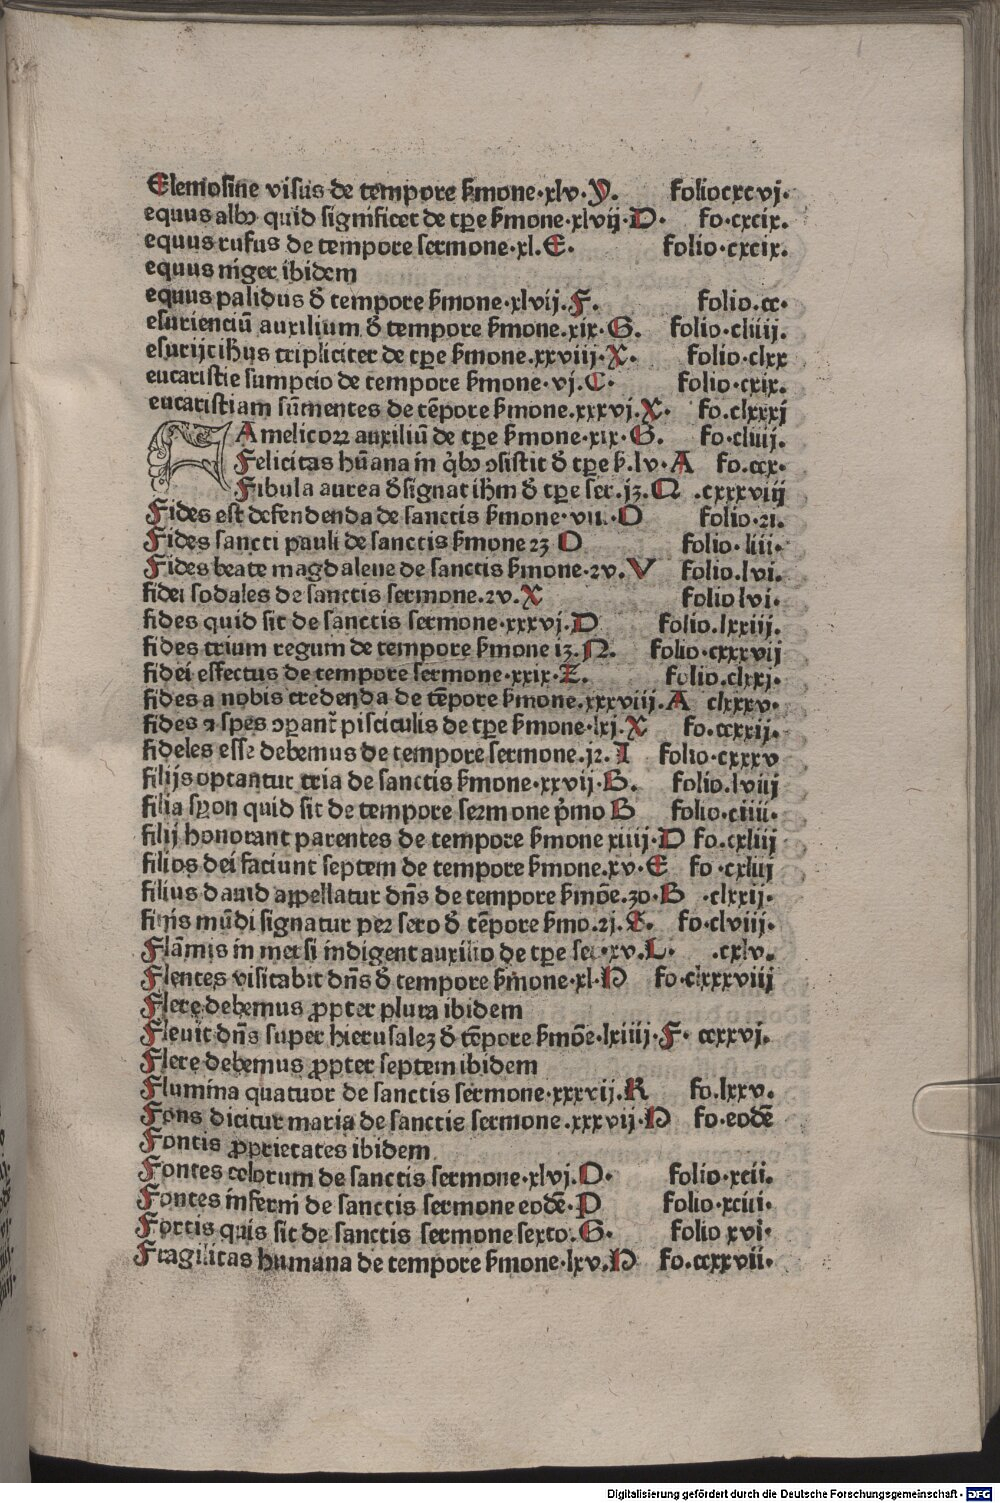 Elemosine visus de tempore ẜmone·xlv·Y. folio cxcvj·
equus albꝰ quid significet de tꝑe ẜmone·xlvij·D· fo·cxcix.
equus rufus de tempore sermone·xl.E· folio·cxcix.
equus niger ibidem
equus palidus đ tempore ẜmone·xlvij.F. folio.cc·
esurienciū auxilium đ tempore ẜmone.xix·G. folio·cliiij.
esurijt ihūs tripliciter de tꝑe ẜmone.xxviij·X· folio·clxx
eucaristie sumpcio de tempore ẜmone·vj.C· folio·cxix.
eucaristiam sūmentes de tēpore ẜmone.xxxvj.X· fo.clxxxj
FAmelicoꝝ auxiliū de tꝑe ẜmone·xix·G. fo·cliiij.
Felicitas hūana in q̇bꝰ ↄsistit đ tꝑe ẜ.lv·A fo.ccx·
Fibula aurea đsignat ihm̄ đ tꝑe ser.jꝫ.Q .cxxxviij
Fides est defendenda de sanctis ẜmone·vii.O folio·21.
Fides sancti pauli de sanctis ẜmone 23 O folio·liii·
Fides beate magdalene de sanctis ẜmone·2v.V folio.lvi.
fidei sodales de sanctis sermone.2v.X folio lvi·
fides quid sit de sanctis sermone·xxxvj.D folio.lxxiij.
fides trium regum de tempore ẜmone i3.N. folio·cxxxvij
fidei effectus de tempore sermone·xxix·Z. folio.clxxj·
fides a nobis credenda de tēpore ẜmone.xxxviij.A clxxxv·
fides ⁊ spes ↄꝑant᷑ pisciculis de tꝑe ẜmone·lxj.X fo.ccxxij.
fideles esse debemus de tempore sermone.j2.I folio·cxxxv
filijs optantur tria de sanctis ẜmone·xxvij·B. folio.lviij
filia syon quid sit de tempore sermone p̄mo B folio·ciiii·
filij honorant parentes de tempore ẜmone xiiij·D fo.cxliij
filios dei faciunt septem de tempore ẜmone.xv·E fo·cxliij
filius dauid appellatur dn̄s de tempore ẜmōe.30·B ·clxxij.
finis mūdi signatur per sero đ tēpore ẜmo.2j.C. fo·clviij.
Flām̄is in mersi indigent auxilio de tꝑe ser·xv.L· .cxlv.
Flentes visitabit dn̄s đ tempore ẜmone·xl·N fo·clxxxviij
Flere debemus ꝓpter plura ibidem
Fleuit dn̄s super hierusalez đ tēpore ẜmōe·lxiiij·F· ccxxvj.
Flere debemus ꝓpter septem ibidem
Flumina quatuor de sanctis sermone·xxxvij.R fo.lxxv.
Fons dicitur maria de sanctis sermone.xxxvij·N fo·eodē
Fontis ꝓprietates ibidem
Fontes celorum de sanctis sermone·xlvj.O· folio·xcii.
Fontes inferni de sanctis sermone eodē·P folio·xciii·
Fortis quis sit de sanctis sermone sexto.G· folio xvi·
Fragilitas humana de tempore ẜmone·lxv.N fo.ccxxvii·
Digitalisierung gefördert durch die Deutsche Forschungsgemeinschaft - DFG